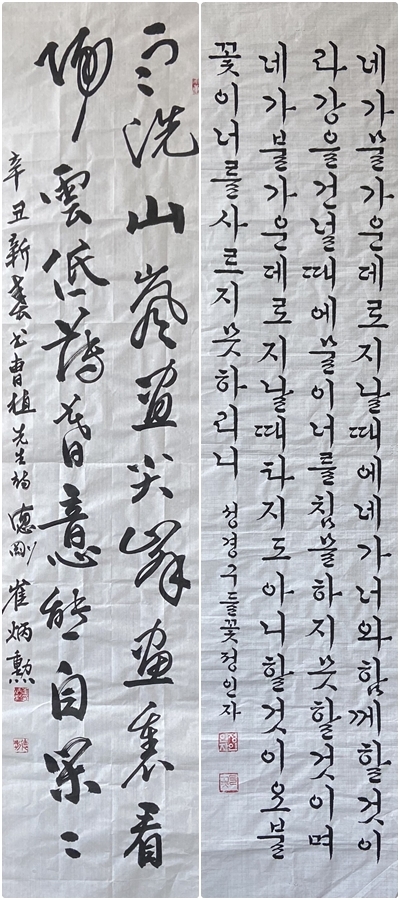 雨洗山嵐盡尖峰畵裏看
歸雲低薄暮意態自閑〻
辛丑新春书曹植先生詩 德剛 崔炳勳
네가물가운데로지날때에네가너와함께할것이
라강을건널때에물이너를침몰하지못할것이며
네가불가운데로지날때타지도아니할것이오불
꽃이너를사르지못하리니 성경구들꽃정인자